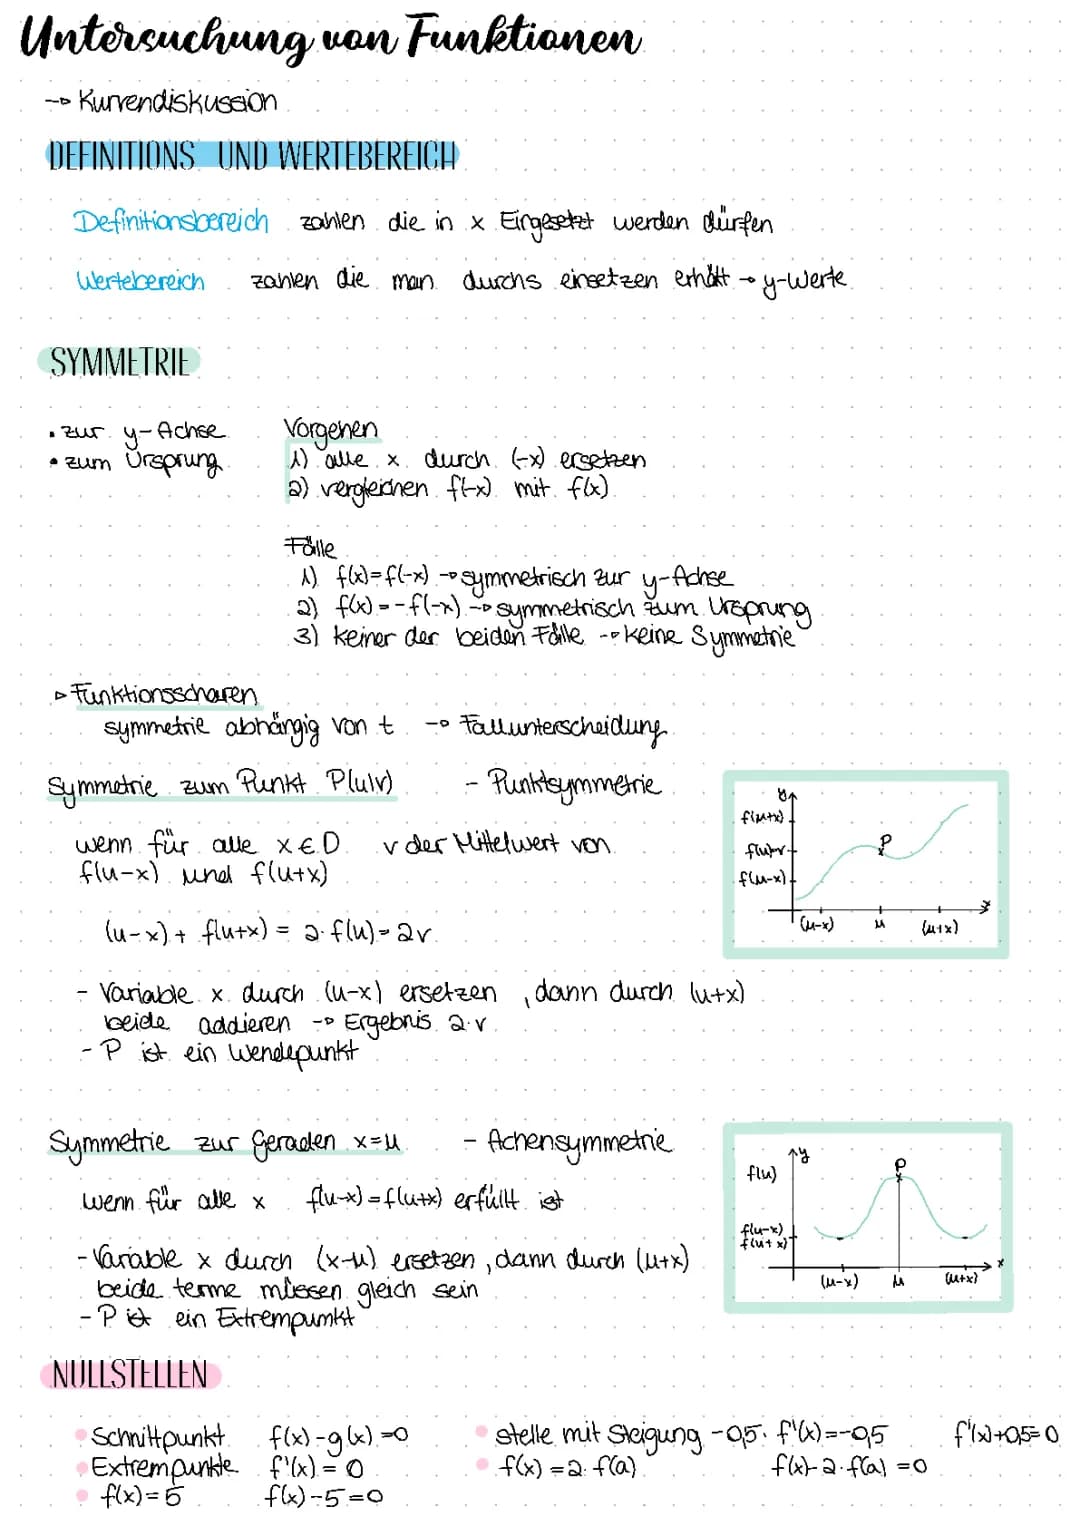 Untersuchung von Funktionen
→ Kurvendiskussion
DEFINITIONS UND WERTEBEREICH
Definitionsbereich zahlen die in x Eingesetzt werden dürfen
Wertebereich zahlen die man durchs einsetzen erhält → y-Werte
SYMMETRIE
• zur y-Achse
• zum Ursprung
Vorgehen
1) alle x durch (-x) ersetzen
2) vergleichen f(-x) mit f(x)
Fälle
1) f(x)=f(-x) → symmetrisch zur y-Achse
2) f(x)=-f(-x) → symmetrisch zum Ursprung
3) keiner der beiden Fälle → keine Symmetrie
▹ Funktionsscharen
symmetrie abhängig von t → Fallunterscheidung
Symmetrie zum Punkt P(u|v) - Punktsymmetrie
wenn für alle x∈D v der Mittelwert von
f(u-x) und f(u+x)
(u-x)+ f(u+x) = 2·f(u)=2v
- Variable x durch (u-x) ersetzen, dann durch (u+x)
beide addieren → Ergebnis 2·v
- P ist ein Wendepunkt
y
f(u+x)
f(u)=v
f(u-x)
P
x
(u-x) u (u+x)
Symmetrie zur Geraden x=u - Achensymmetrie
wenn für alle x f(u-x)=f(u+x) erfüllt ist
- Variable x durch (x-u) ersetzen, dann durch (u+x)
beide terme müssen gleich sein
- P ist ein Extrempunkt
y
f(u)
P
f(u-x)
f(u+x)
x
(u-x) u (u+x)
NULLSTELLEN
• Schnittpunkt f(x)-g(x)=0
• Extrempunkte f'(x)=0
• f(x)=5 f(x)-5=0
• stelle mit Steigung -0,5. f'(x)=-0,5 f'(x)+0,5=0
• f(x)=2·f(a) f(x)-2·f(a)=0